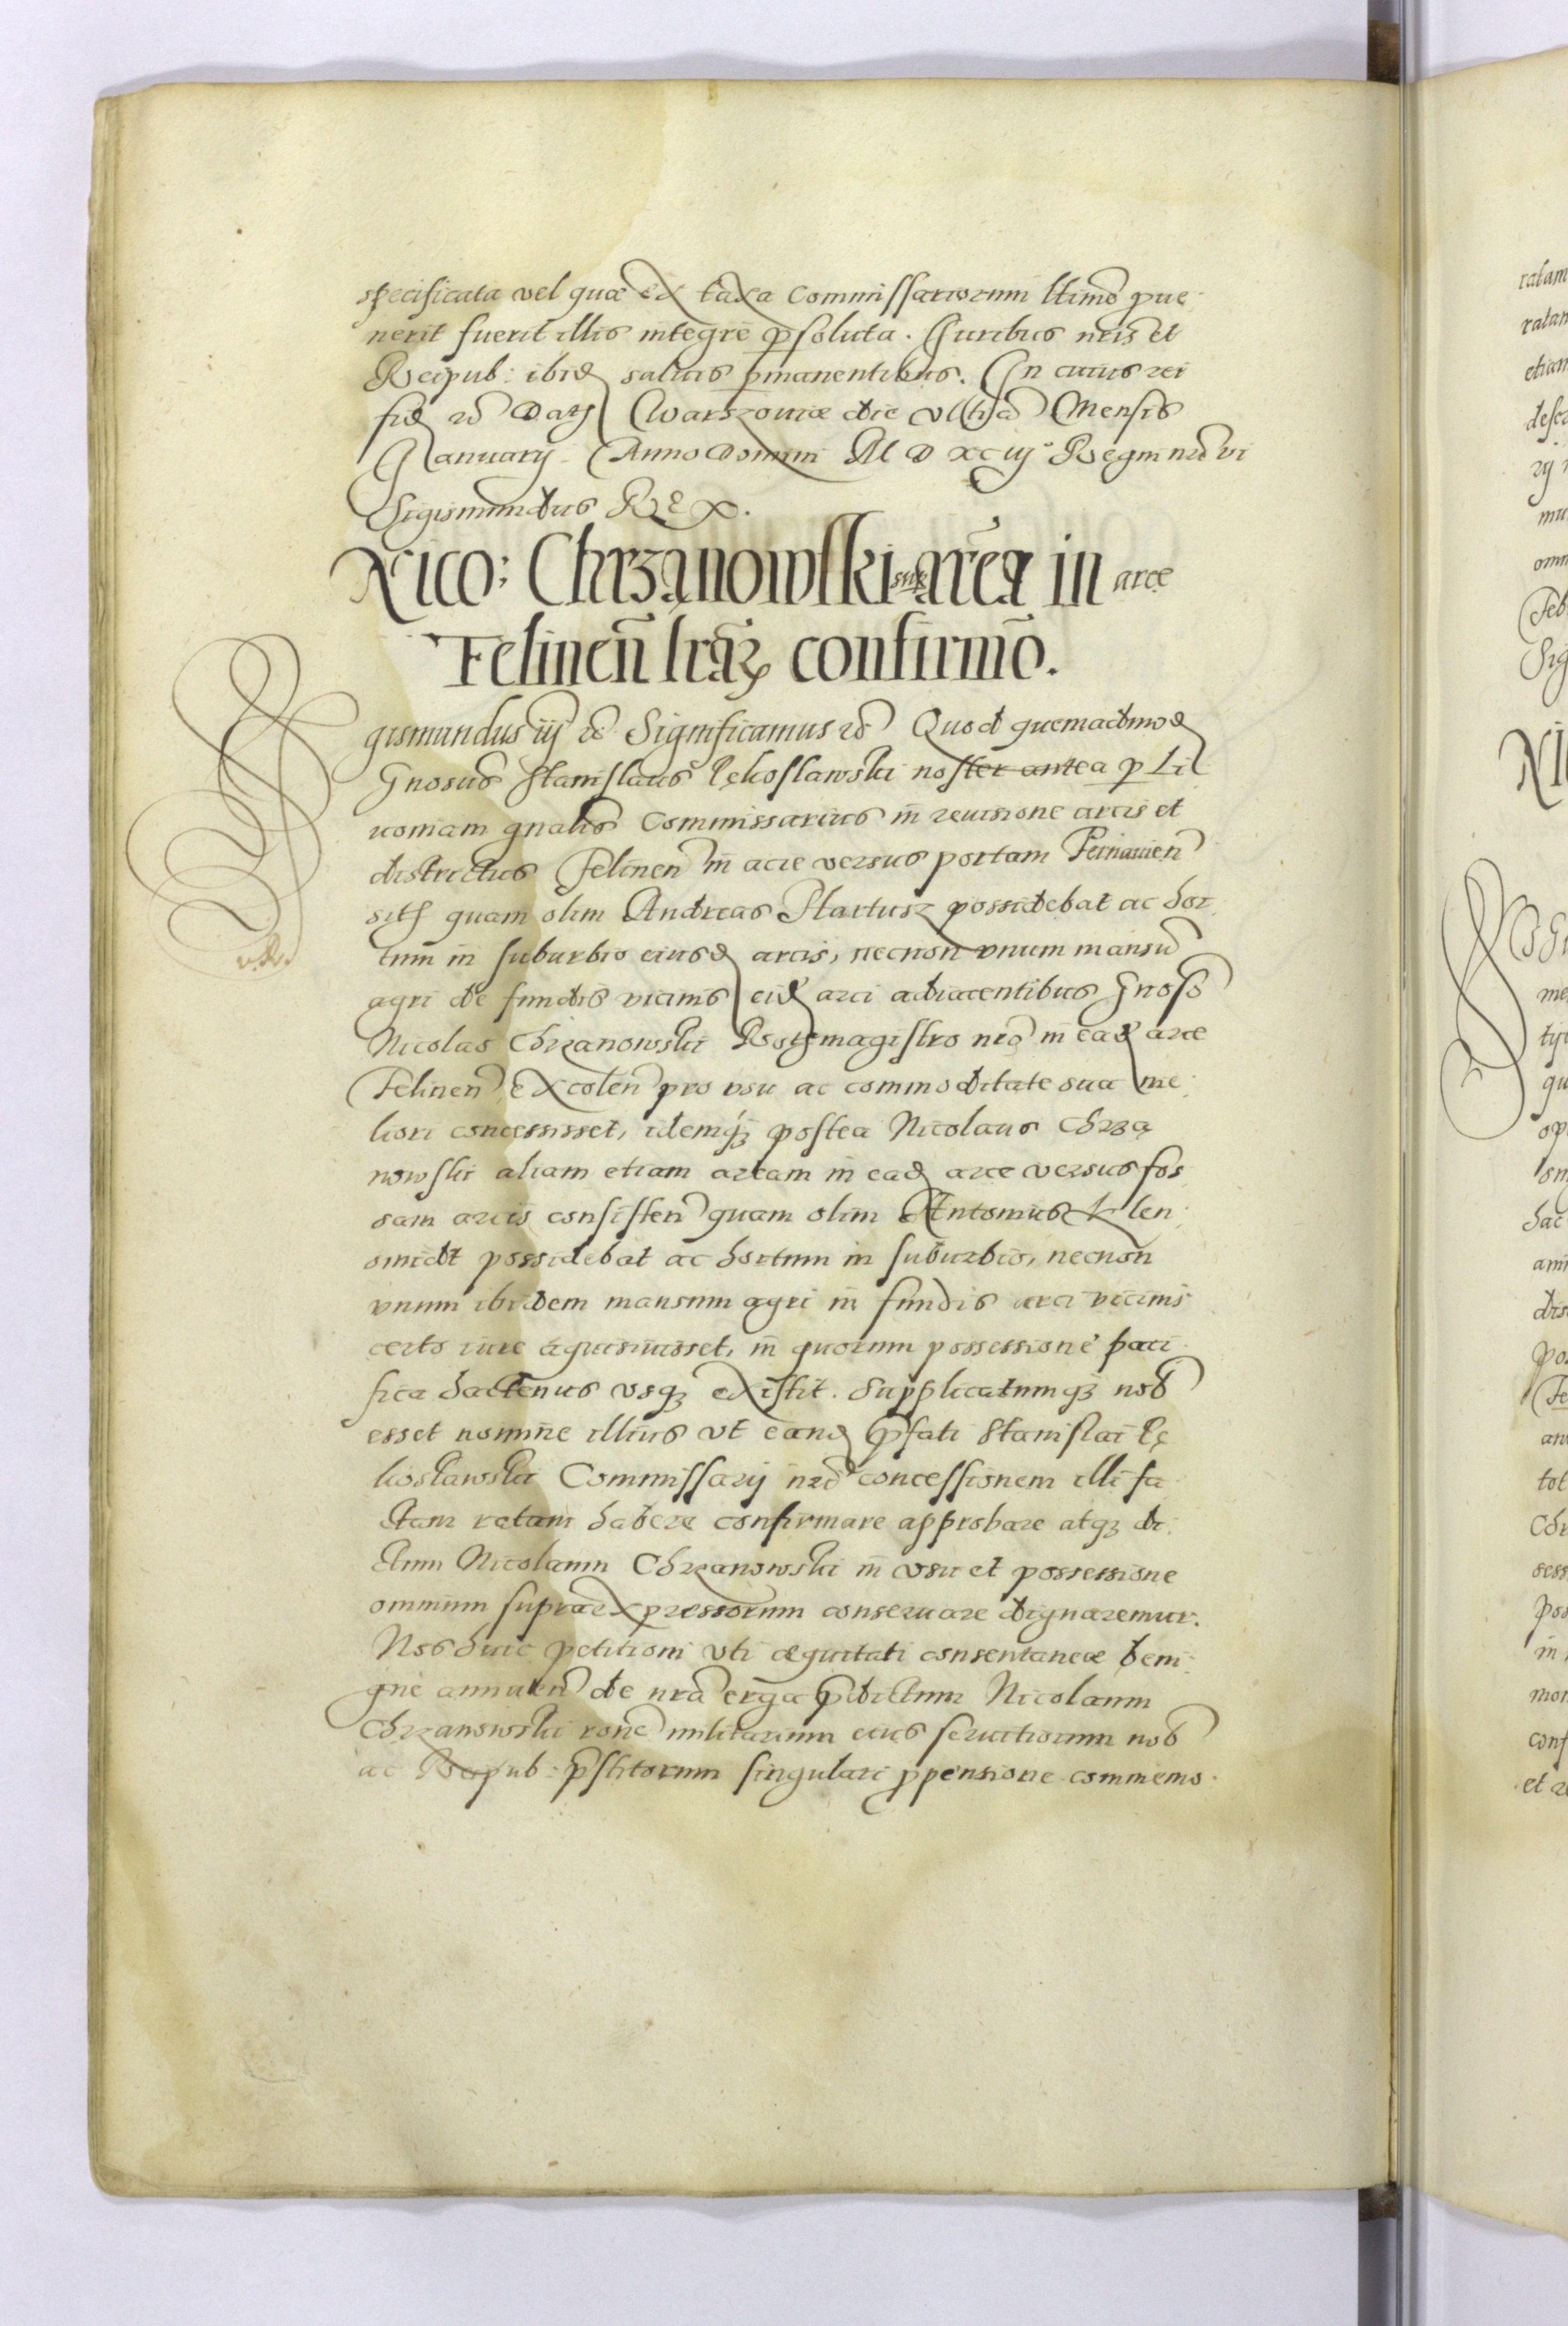 specificata vel quæ ex taxa Commissariorum ltimo pue-
nerit fuerit illis integre psoluta. Iuribus nris et
Reipub: ibid saluis pmanentibus. In cuius rei
fid &c Dat Warszouiæ die vltia Mensis
Ianuarij Anno Domini M D XC iij Regni nri vi
Sigismundus Rex.
Nico: Chrzanowski suæ areæ in arce
Felinen lraz confirmo.
gismundus iij &c Significamus &c Quod quemadmod
Gnosus Stanislaus Lękoslawski noster antea p Li-
uoniam gnalis Commissarius in reuisione arcis et
districtus Felinen in acie versus portam Pernauien
sit quam olim Andreas Hartusz possidebat ac hor-
tum in suburbio eiusd arcis, necnon vnum mansu
agri de fundis vicinis eid arci adiacentibus Gnoso
Nicolao Chrzanowski Rotmagistro nro in ead arce
Felinen excolen pro vsu ac commoditate sua me-
liori concessisset, idemq postea Nicolaus Chrza-
nowski aliam etiam aream in ead arce versus fos-
sam arcis consisten quam olim Antonius Klen-
smidt possidebat ac hortum in suburbio, necnon
vnum ibidem mansum agri in fundis arci vicinis
certo iure aquisiuisset, in quorum possessione paci-
fica hactenus vsq existit. Supplicatumq nob
esset nomine illius vt eand pfati Stanislai Lę-
koslawski Commissarij nri concessionem illi fa-
ctam ratam habere confirmare approbare atq di-
ctum Nicolaum Chrzanowski in vsu et possessione
omnium supraexpressorum conseruare dignaremur.
Nos huic petitioni vti æquitati consentaneæ beni-
gne annuen de nra erga pdictum Nicolaum
Chrzanowski rone militarium eius seruitiorum nob
ac Reipub: pstitorum singulari ppensione commemo-